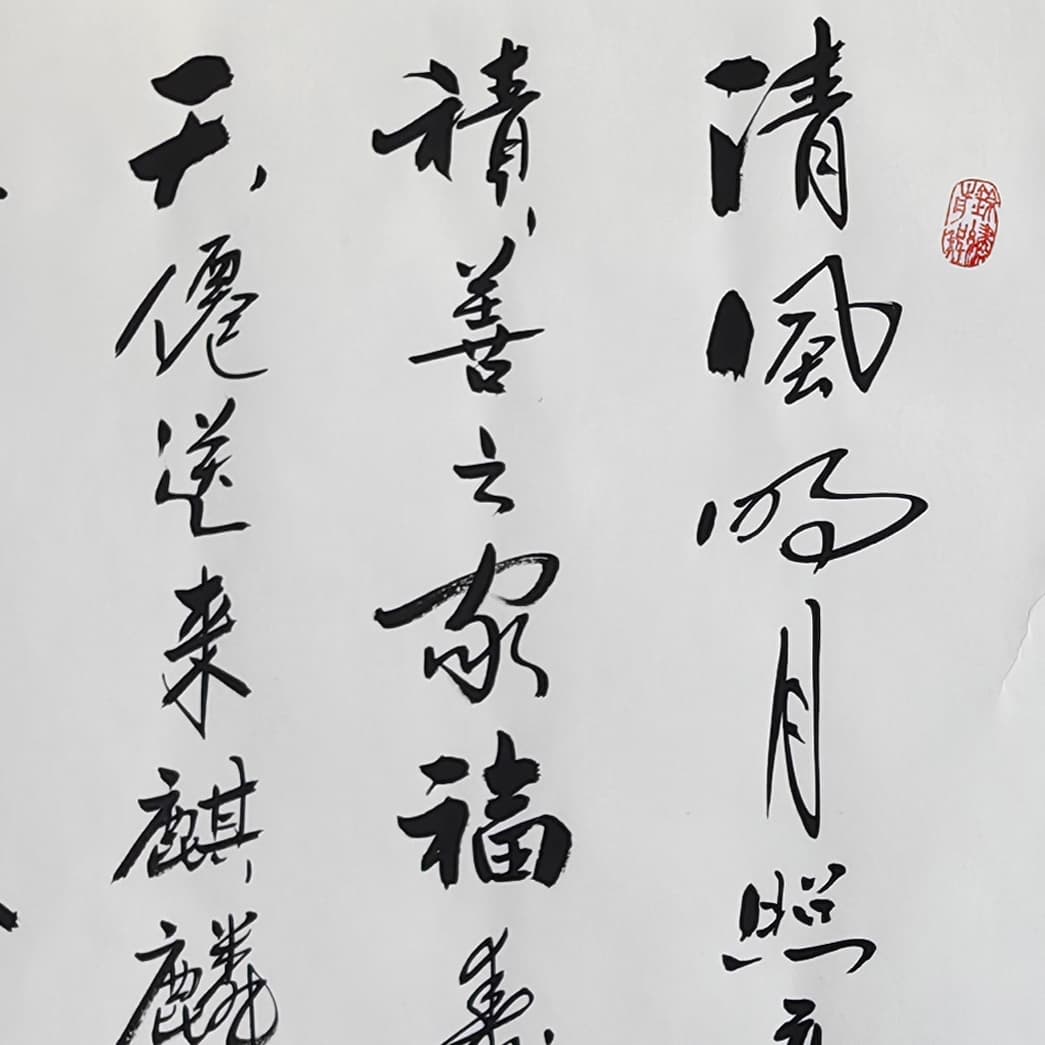 清風明月照
積善之家福壽
天僊送来麒麟